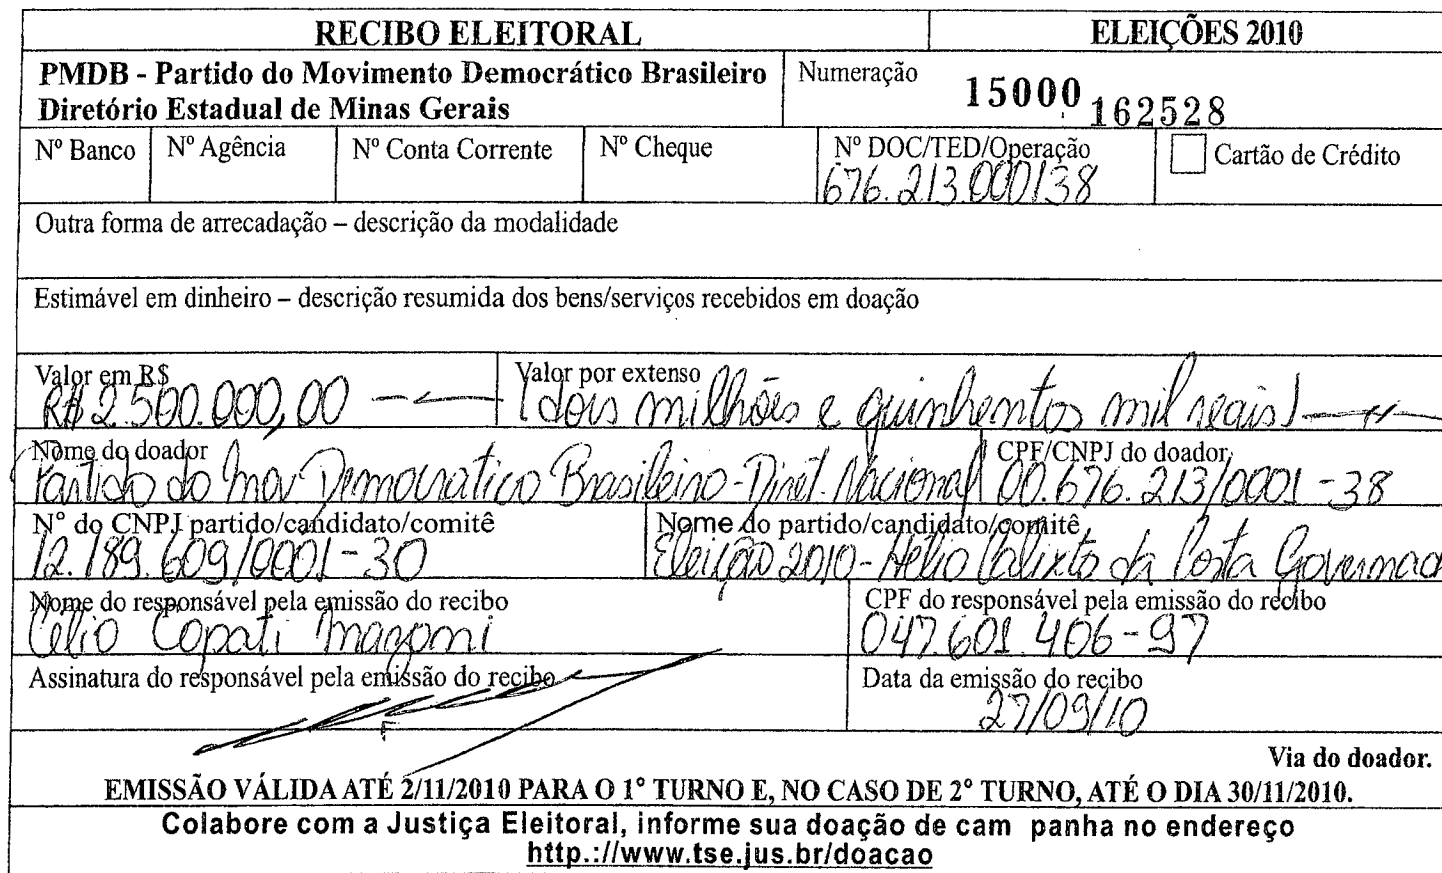 RECIBO ELEITORAL
ELEIÇÕES 2010
PMDB - Partido do Movimento Democrático Brasileiro
Diretório Estadual de Minas Gerais
Numeração
15000 162528
Nº Banco
Nº Agência
Nº Conta Corrente
Nº Cheque
Nº DOC/TED/Operação
676.213.000138
Cartão de Crédito
Outra forma de arrecadação – descrição da modalidade
Estimável em dinheiro – descrição resumida dos bens/serviços recebidos em doação
Valor em R$
R$ 2.500.000,00
Valor por extenso
(dois milhões e quinhentos mil reais)
Nome do doador
Partido do Mov Democratico Brasileiro - Diret. Nacional
CPF/CNPJ do doador
00.676.213/0001-38
N° do CNPJ partido/candidato/comitê
12.189.609/0001-30
Nome do partido/candidato/comitê
Eleição 2010 - Hélio Calixto da Costa Governad
Nome do responsável pela emissão do recibo
Célio Copati Mazoni
CPF do responsável pela emissão do recibo
047.601.406-97
Assinatura do responsável pela emissão do recibo
Data da emissão do recibo
27/09/10
Via do doador.
EMISSÃO VÁLIDA ATÉ 2/11/2010 PARA O 1° TURNO E, NO CASO DE 2° TURNO, ATÉ O DIA 30/11/2010.
Colabore com a Justiça Eleitoral, informe sua doação de cam panha no endereço
http.://www.tse.jus.br/doacao